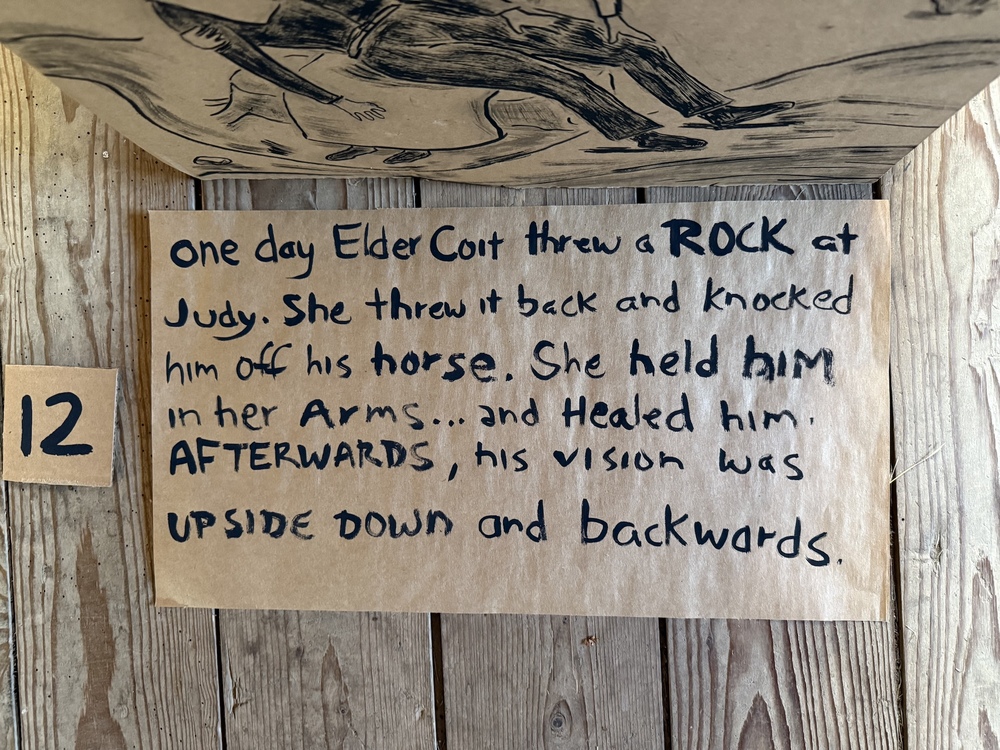 one day Elder Coit threw a ROCK at
Judy. She threw it back and knocked
him off his horse. She held him
in her Arms... and Healed him.
AFTERWARDS, his vision was
UPSIDE DOWN and backwards.
12